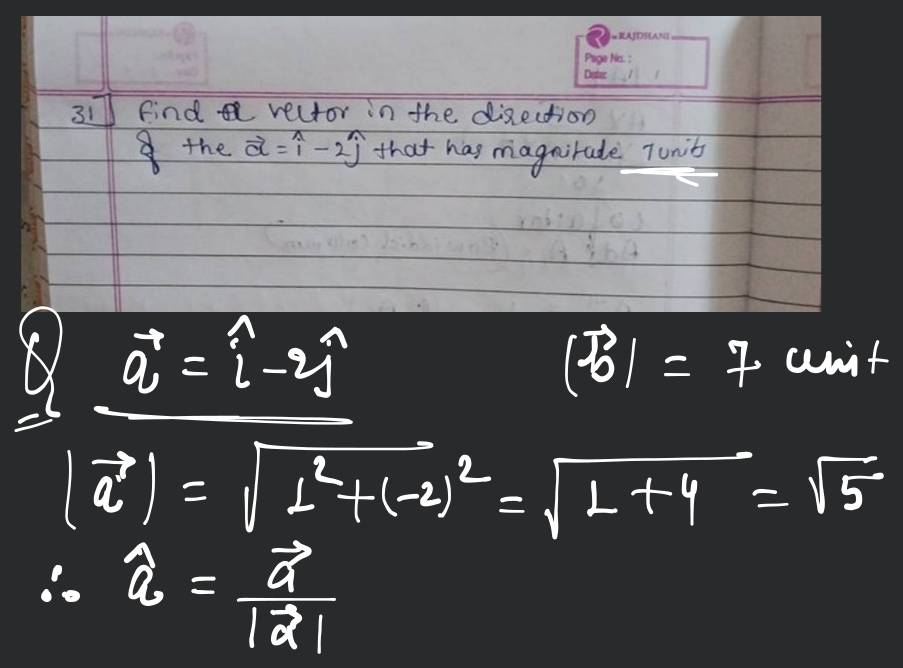 RAJDHANI
Page No.:
Date:
31] Find a vector in the direction
of the a⃗ = î - 2ĵ that has magnitude 7units
Q a⃗ = î - 2ĵ |b⃗| = 7 unit
|a⃗| = √1² + (-2)² = √1 + 4 = √5
∴ â = a⃗ / |a⃗|